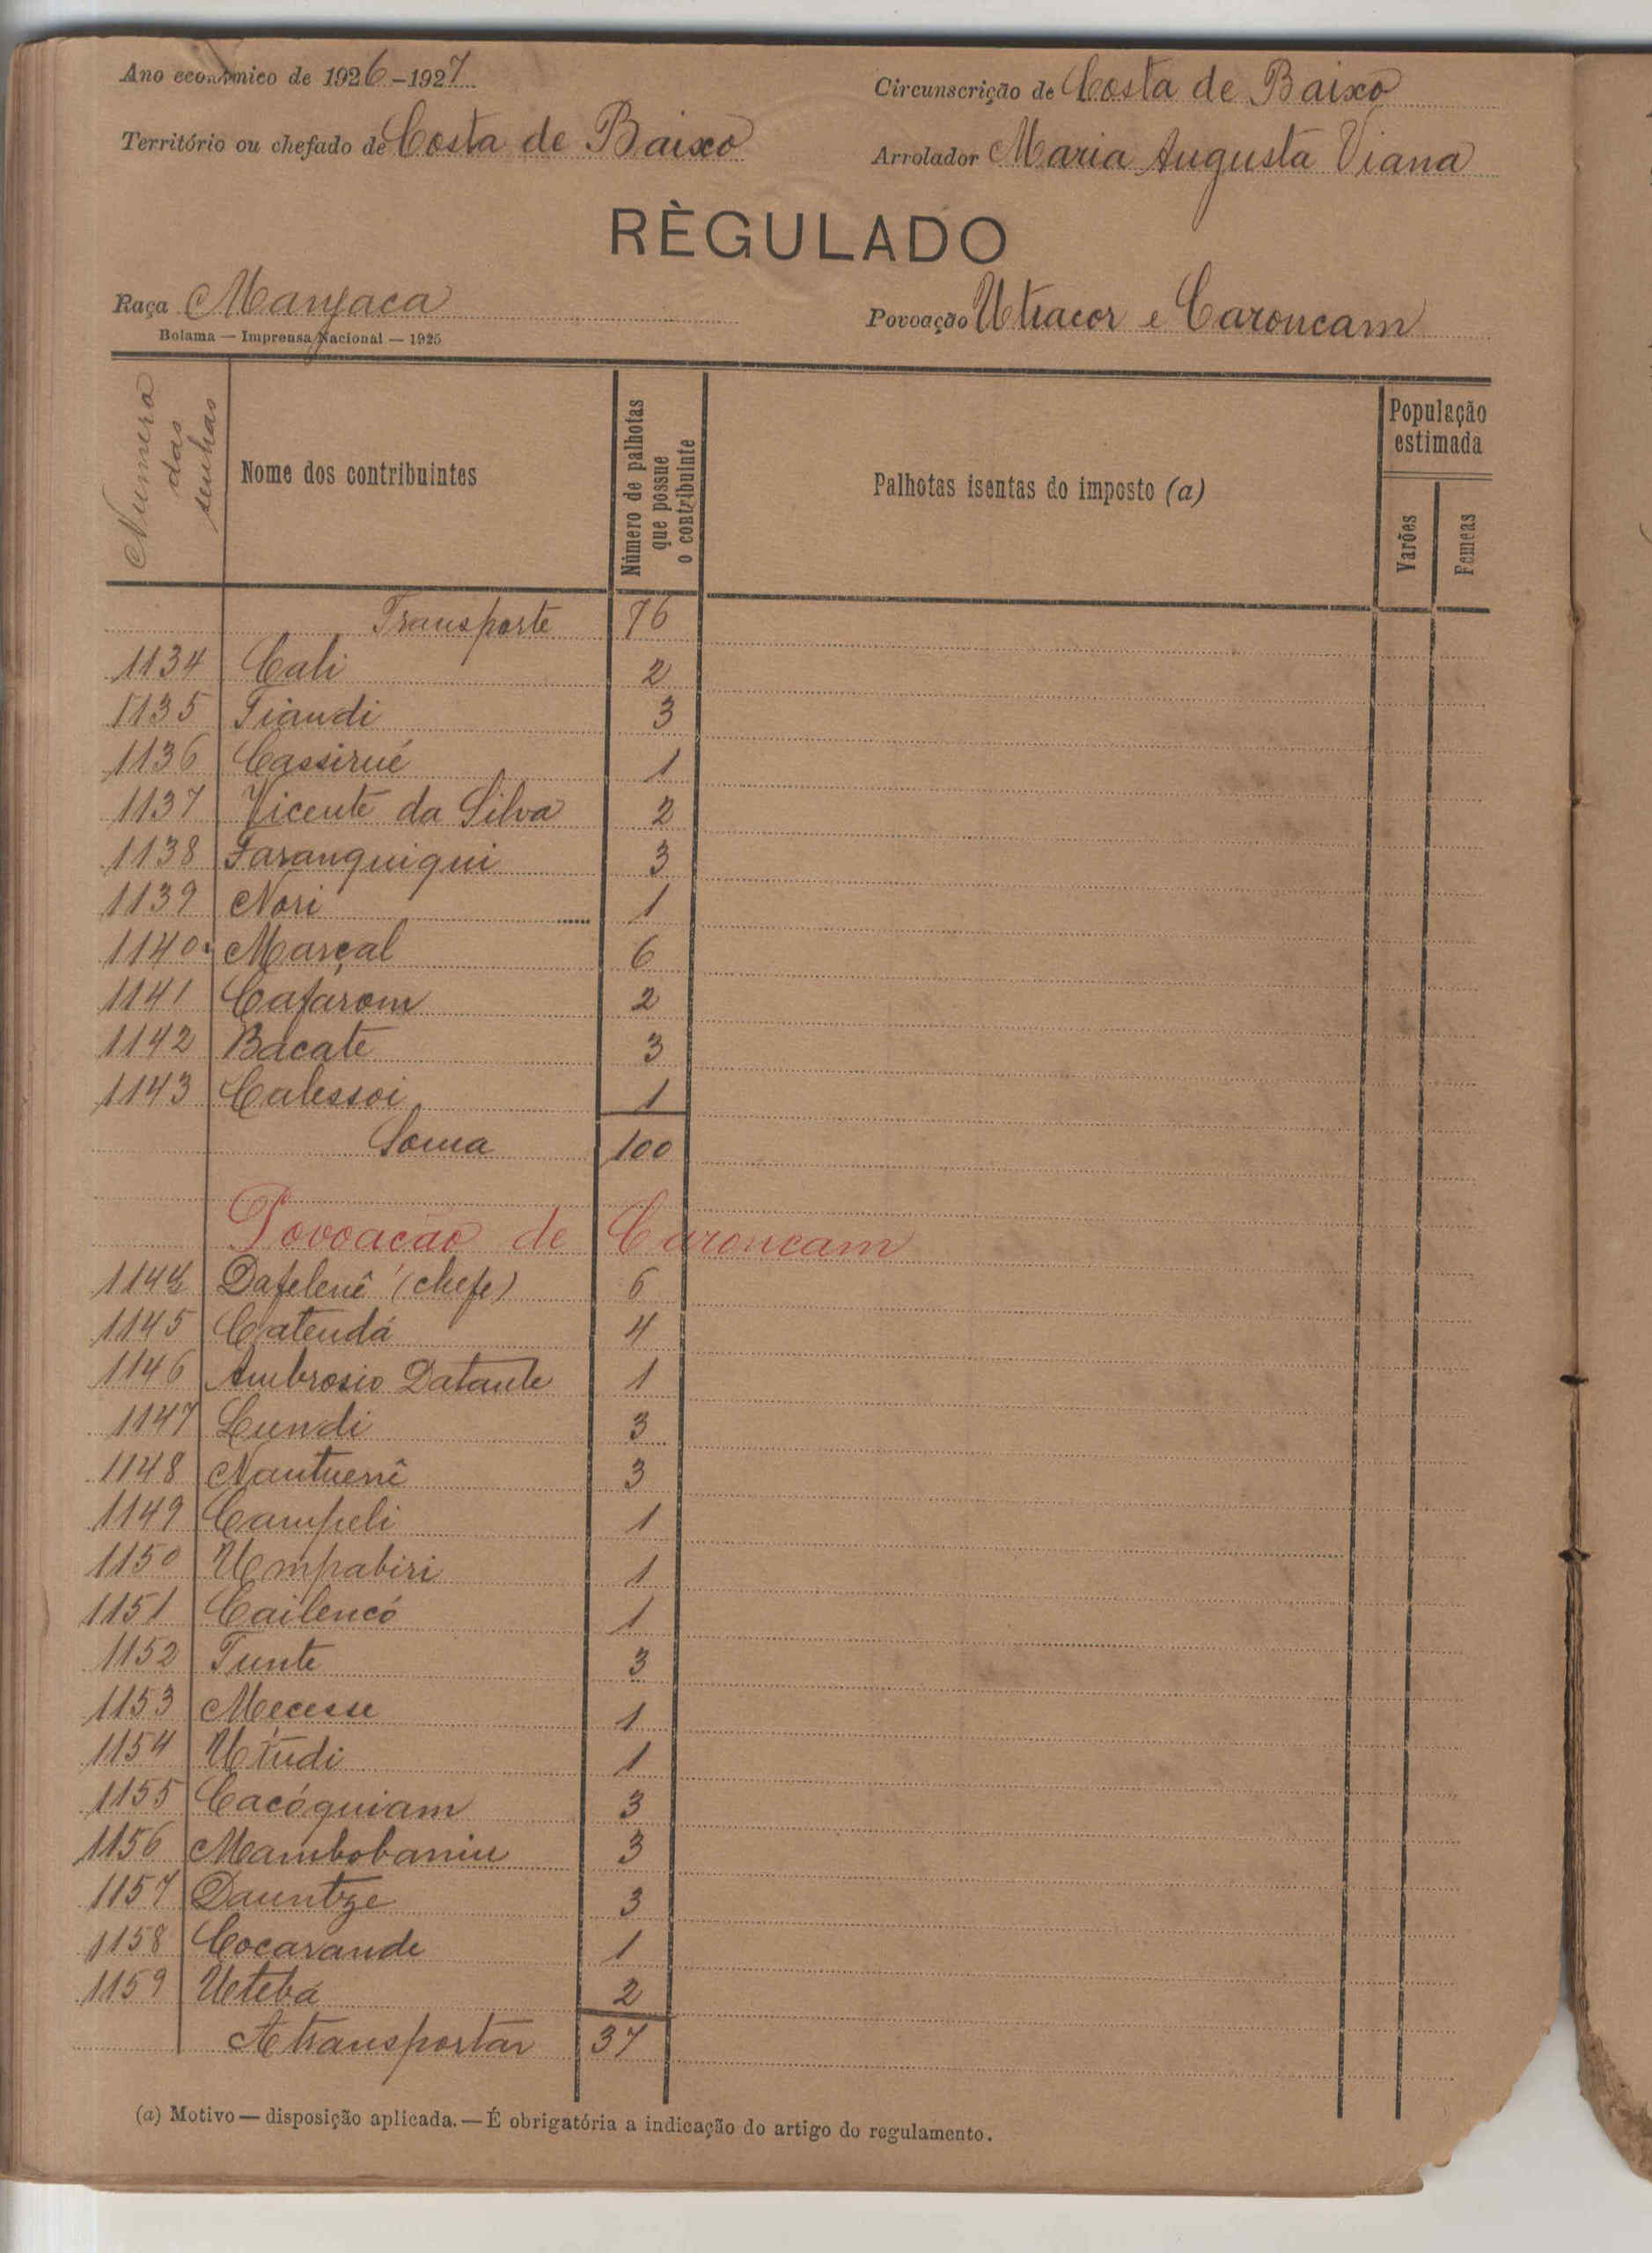 Ano económico de 1926-1927
Circunscrição de Costa de Baixo
Território ou chefado de Costa de Baixo
Arrolador Maria Augusta Viana
RÈGULADO
Raça Manjaca
Povoação Utiacor e Caroncam
Bolama — Imprensa Nacional — 1925
Numero das senhas
Nome dos contribuintes
Número de palhotas que possue o contribuinte
Palhotas isentas do imposto (a)
População estimada
Varões
Femeas
Transporte 76
1134 Cali 2
1135 Tiandi 3
1136 Cassirué 1
1137 Vicente da Silva 2
1138 Faranquiqui 3
1139 Nori 1
1140 Marçal 6
1141 Cafarom 2
1142 Bacate 3
1143 Calessoi 1
Soma 100
Povoacão de Caroncam
1144 Dafelenê (chefe) 6
1145 Catendá 4
1146 Ambrosio Datante 1
1147 Lundi 3
1148 Nantuenê 3
1149 Campeli 1
1150 Umpabiri 1
1151 Cailencó 1
1152 Tunte 3
1153 Mecesse 1
1154 Utudi 1
1155 Cacóquiam 3
1156 Mambobaniu 3
1157 Dauntze 3
1158 Cocarande 1
1159 Utebá 2
A transportar 37
(a) Motivo — disposição aplicada. — É obrigatória a indicação do artigo do regulamento.